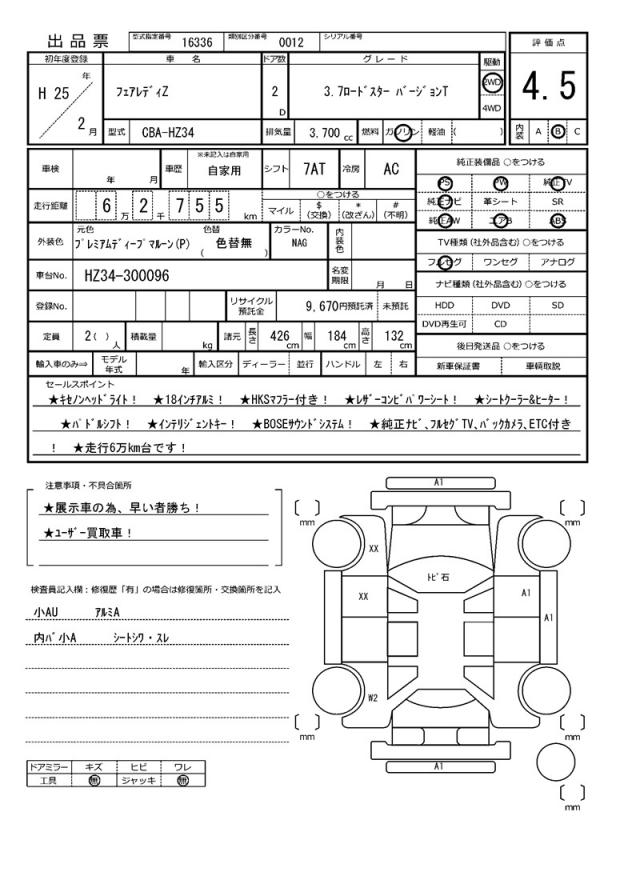 出品票 型式指定番号 16336 類別区分番号 0012 シリアル番号
評価点
4.5
内装 A B C
初年度登録 車名 ドア数 グレード 駆動
H 25 年 2 月
フェアレディZ
2 D
3.7ロードスター バージョンT
2WD
4WD
型式 CBA-HZ34 排気量 3,700 cc 燃料 ガソリン 軽油 ( )
車検 年 月 車歴 ※未記入は自家用 自家用 シフト 7AT 冷房 AC
純正装備品 ○をつける
PS PW 純正TV
純正ナビ 革シート SR
純正AW エアB ABS
走行距離 6 万 2 千 7 5 5 km
○をつける
マイル $(交換) *(改ざん) #(不明)
TV種類(社外品含む)○をつける
フルセグ ワンセグ アナログ
外装色 元色 プレミアムディープマルーン(P) 色替 ( 色替無 ) カラーNo. NAG 内装色
車台No. HZ34-300096 名変期限 月 日
ナビ種類(社外品含む)○をつける
HDD DVD SD
DVD再生可 CD
登録No. リサイクル預託金 9,670円預託済 未預託
定員 2( )人 積載量 kg 諸元 長さ 426 cm 幅 184 cm 高さ 132 cm
後日発送品 ○をつける
新車保証書 車輌取説
輸入車のみ⇒ モデル年式 年 輸入区分 ディーラー 並行 ハンドル 左 右
セールスポイント
★キセノンヘッドライト! ★18インチアルミ! ★HKSマフラー付き! ★レザーコンビパワーシート! ★シートクーラー&ヒーター!
★パドルシフト! ★インテリジェントキー! ★BOSEサウンドシステム! ★純正ナビ、フルセグTV、バックカメラ、ETC付き
! ★走行6万km台です!
注意事項・不具合箇所
★展示車の為、早い者勝ち!
★ユーザー買取車!
検査員記入欄:修復歴「有」の場合は修復箇所・交換箇所を記入
小AU アルミA
内バ小A シートシワ・スレ
ドアミラー キズ ヒビ ワレ
工具 無 ジャッキ 無
A1
mm
mm
XX
トビ石
XX
A1
A1
W2
mm
mm
A1
mm